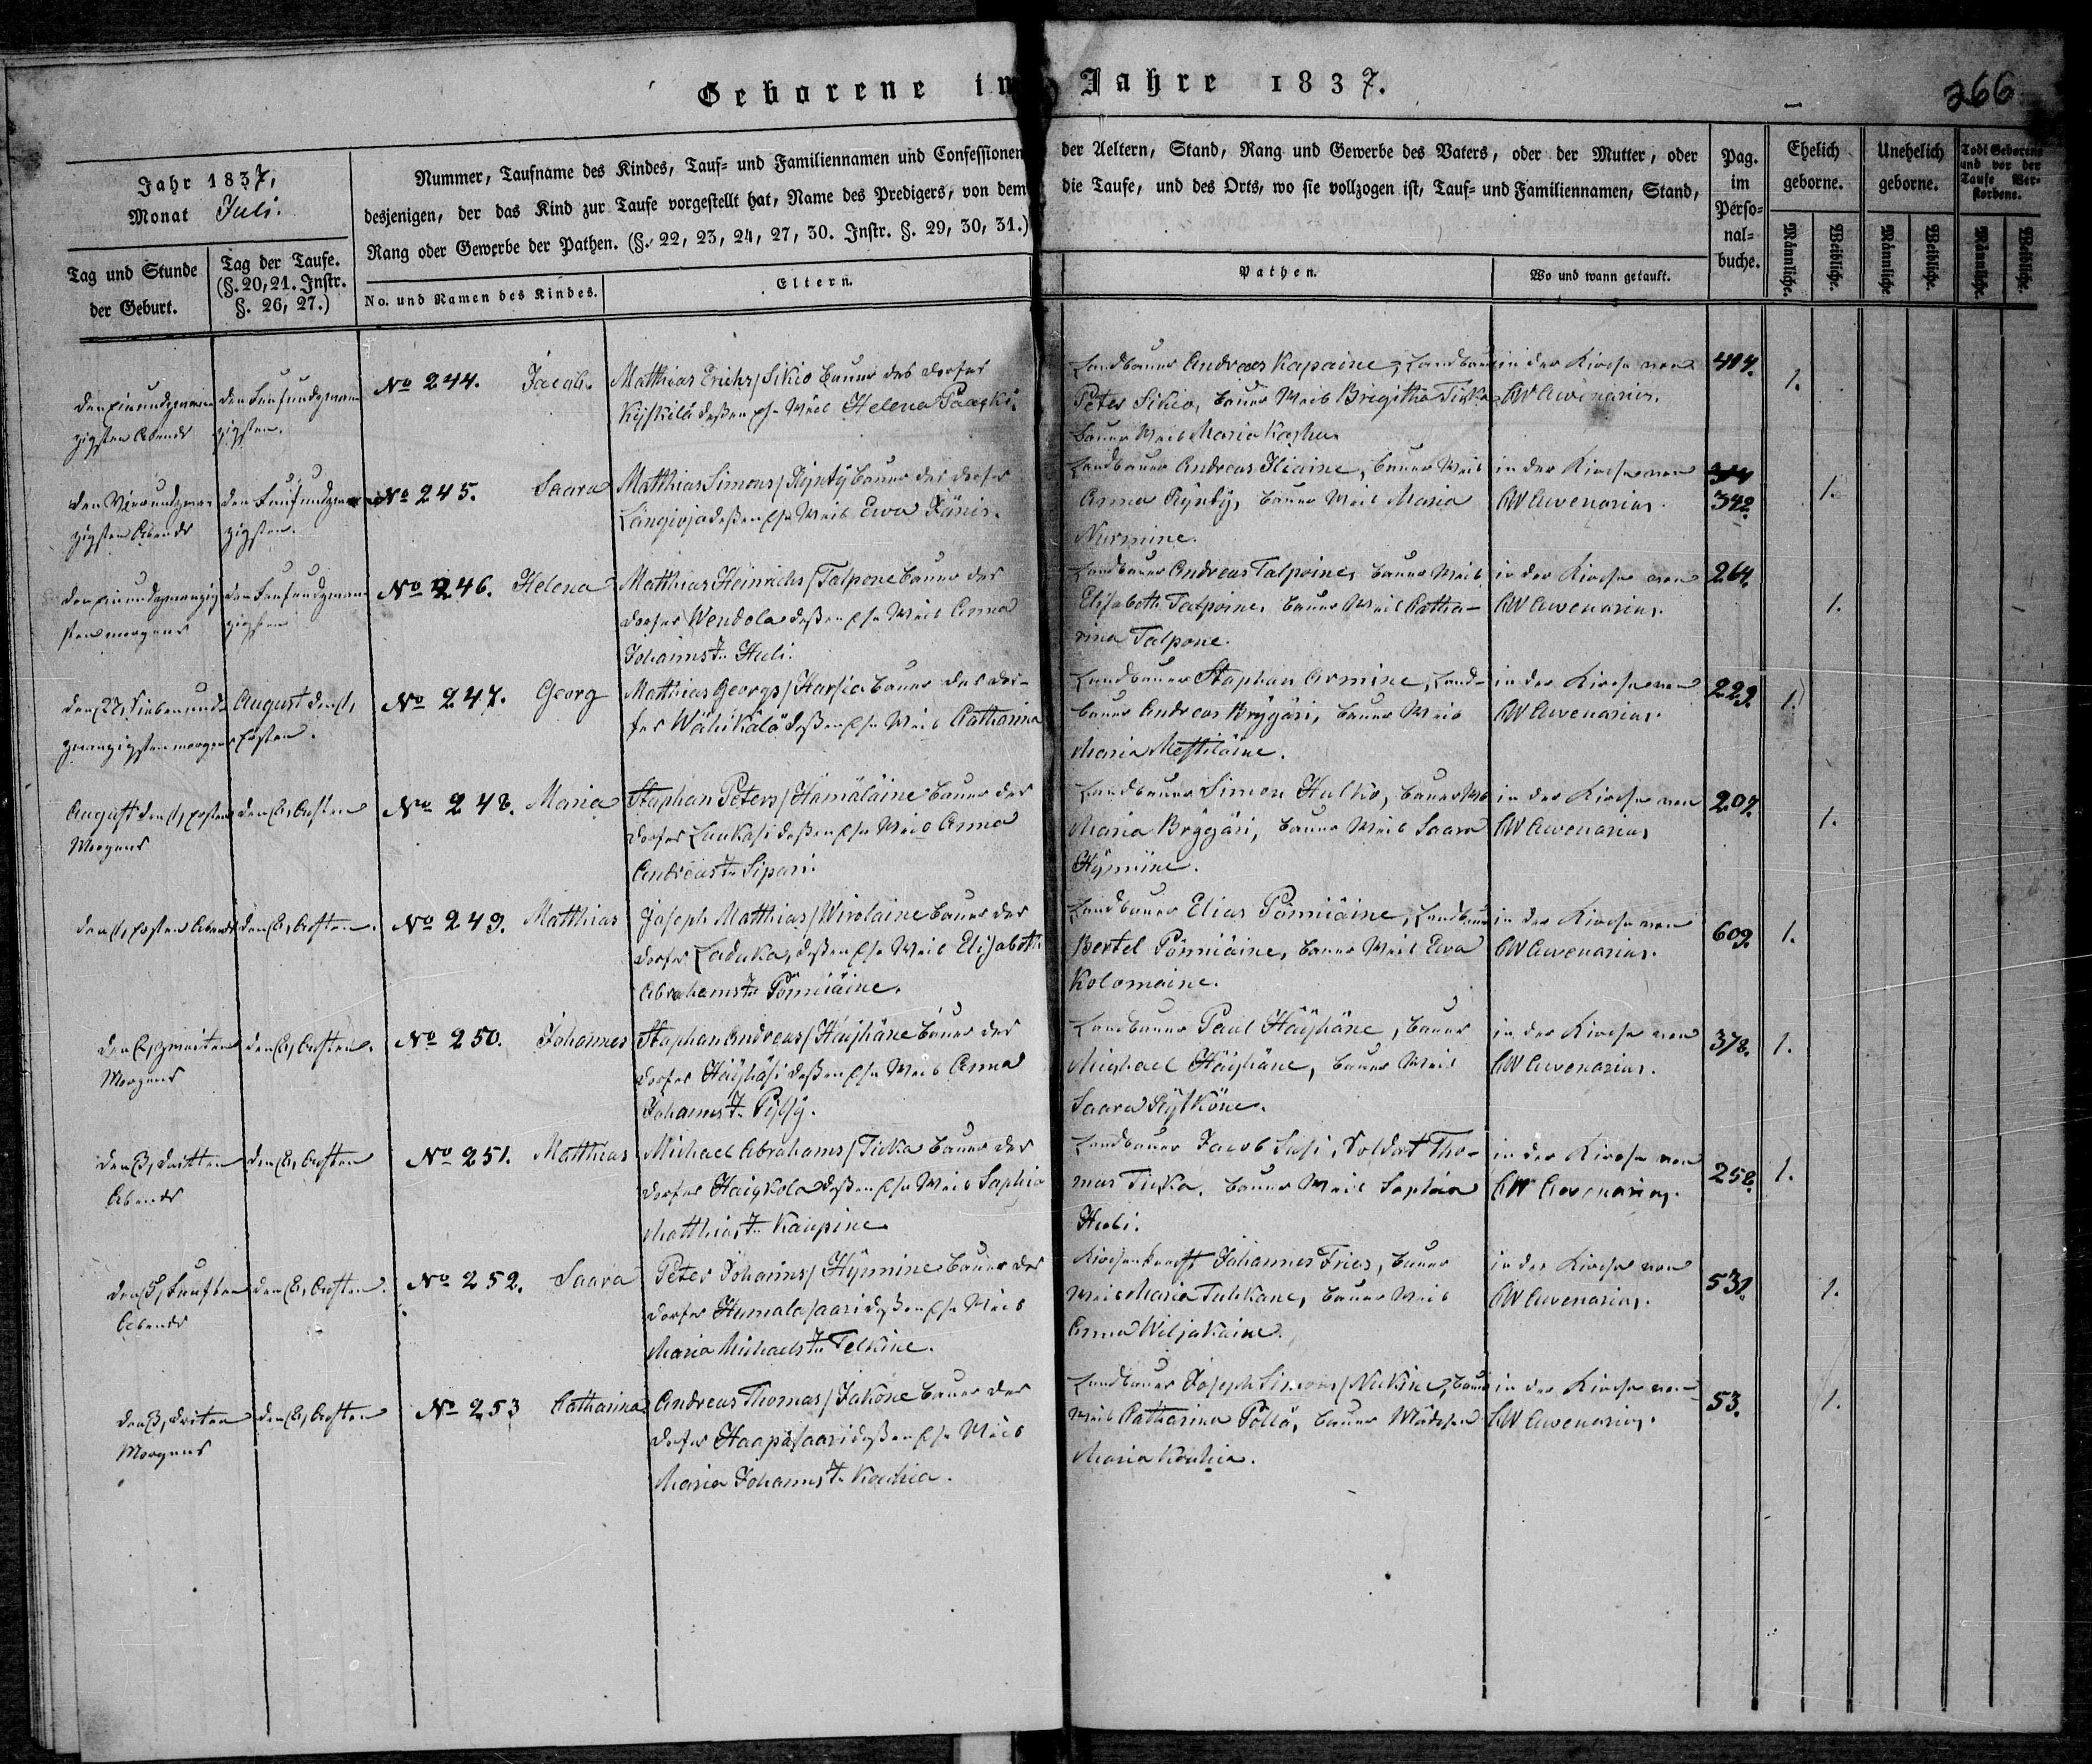 Geborene im Jahre 1837.
266
Jahr 1837,
Monat Juli.
Nummer, Taufname des Kindes, Tauf= und Familiennamen und Confessionen der Aeltern, Stand, Rang und Gewerbe des Vaters, oder der Mutter, oder
desjenigen, der das Kind zur Taufe vorgestellt hat, Name des Predigers, von dem die Taufe, und des Orts, wo sie vollzogen ist, Tauf= und Familiennamen, Stand,
Rang oder Gewerbe der Pathen. (§. 22, 23, 24, 27, 30. Instr. §. 29, 30, 31.)
Pag.
im
Perso=
nal=
buche.
Ehelich
geborne.
Unehelich
geborne.
Todt Geborene
und vor der
Taufe Ver=
storbene.
Männliche.
Weibliche.
Männliche.
Weibliche.
Männliche.
Weibliche.
Tag und Stunde
der Geburt.
Tag der Taufe.
(§. 20, 21. Instr.
§. 26, 27.)
No. und Namen des Kindes.
Eltern.
Pathen.
Wo und wann getauft.
den einundzwan
zigsten Abends
den Funfundzwan
zigsten.
No 244. Jacob.
Matthias Erichs/Sikio Bauer des Dorfes
deßen Eh. Weib Helena
Landbauer Andreas Kapaine, Landbauer
Peter Sikio, Bauer Weib Brigitha
Bauer Weib Maria
in der Kirche von
CW Awenarius.
414.
1.
den Vierundzwan
zigsten Abends
den Funfundzwan
zigsten.
No 245. Saara
Matthias Simons/Rÿntÿ Bauer des Dorfes
deßen Eh. Weib Ewa Jänis.
Landbauer Andreas Iliaine, Bauer Weib
Anna Rÿntÿ, Bauer Weib Maria
Nurmine.
in der Kirche von
CW Awenarius.
342.
1.
den einundzwanzig
sten morgens
den Funfundzwan
zigsten
No 246. Helena
Matthias Heinrichs/Talpone Bauer des
Dorfes Wendola deßen Eh. Weib Anna
Johannst. Huli.
Landbauer Andreas Talpoine, Bauer Weib
Elisabeth Talpoine, Bauer Weib Catha-
rina Talpone.
in der Kirche von
CW Awenarius.
264.
1.
den 27, Siebenund
zwanzigsten morgens
August den 1,
Ersten.
No 247. Georg
Matthias Georgs/Harsia Bauer des Dor-
fes Wähikälä deßen Eh. Weib Catharina
Landbauer Staphan Armine, Land-
bauer Andreas Brÿggäri, Bauer Weib
Maria Mestiläine.
in der Kirche von
CW Awenarius.
229.
1.
August den 1, Ersten
Morgens
den 8, Achten
No 248. Maria
Staphan Peters/Hämäläine Bauer des
Dorfes Laukasi deßen Eh. Weib Anna
Andreast. Sipari.
Landbauer Simon Hulko, Bauer Wb
Maria Brÿggäri, Bauer Weib Saara
Hÿnnine.
in der Kirche von
CW Awenarius
207.
1.
den 1, Ersten Abends
den 8, Achten.
No 249. Matthias
Joseph Matthias/Wirolaine Bauer des
Dorfes Laduka, deßen Eh. Weib Elisabeth
Abrahamst. Pönniäine.
Landbauer Elias Pönniäine, Landbauer
Bertel Pönniäine, Bauer Weib Ewa
Kolomaine.
in der Kirche von
CW Awenarius.
609.
1.
den 2, zweiten
Morgens
den 8, Achten.
No 250. Johannes
Staphan Andreas/Häÿhäne Bauer des
Dorfes Häÿhäsi deßen Eh. Weib Anna
Johannst.
Landbauer Paul Häÿhäne, Bauer
Michael Häÿhäne, Bauer Weib
Saara Rÿtköne.
in der Kirche von
CW Awenarius.
378.
1.
den 3, dritten
Abends
den 8, Achten
No 251. Matthias
Michael Abrahams/Tirka Bauer des
Dorfes Haiqkola deßen Eh. Weib Sophia
Matthiast. Kaupine
Landbauer Jacob Susi, Soldat Tho-
mas Tirka, Bauer Weib Sophia
Huli.
in der Kirche von
CW Awenarius.
258.
1.
den 5, Funften
Abends
den 8, Achten.
No 252. Saara
Peter Johanns/Hÿnnine Bauer des
Dorfes Humalasaari deßen Eh. Weib
Maria Michaelst. Telkine.
Kirchenknecht Johannes Fries, Bauer
Weib Maria Tuhkane, Bauer Weib
Anna Wiljakaine.
in der Kirche von
CW Awenarius.
531.
1.
den 3, driten
Morgens
den 8, Achten
No 253 Catharina
Andreas Thomas/Jaköne Bauer des
Dorfes Haapasaari deßen Eh. Weib
Maria Johannst. Kouhia.
Landbauer Joseph Simons/Nukine, Bauer
Weib Catharina Pöllä, Bauer Mädchen
Maria Kouhia.
in der Kirche von
CW Awenarius.
53.
1.